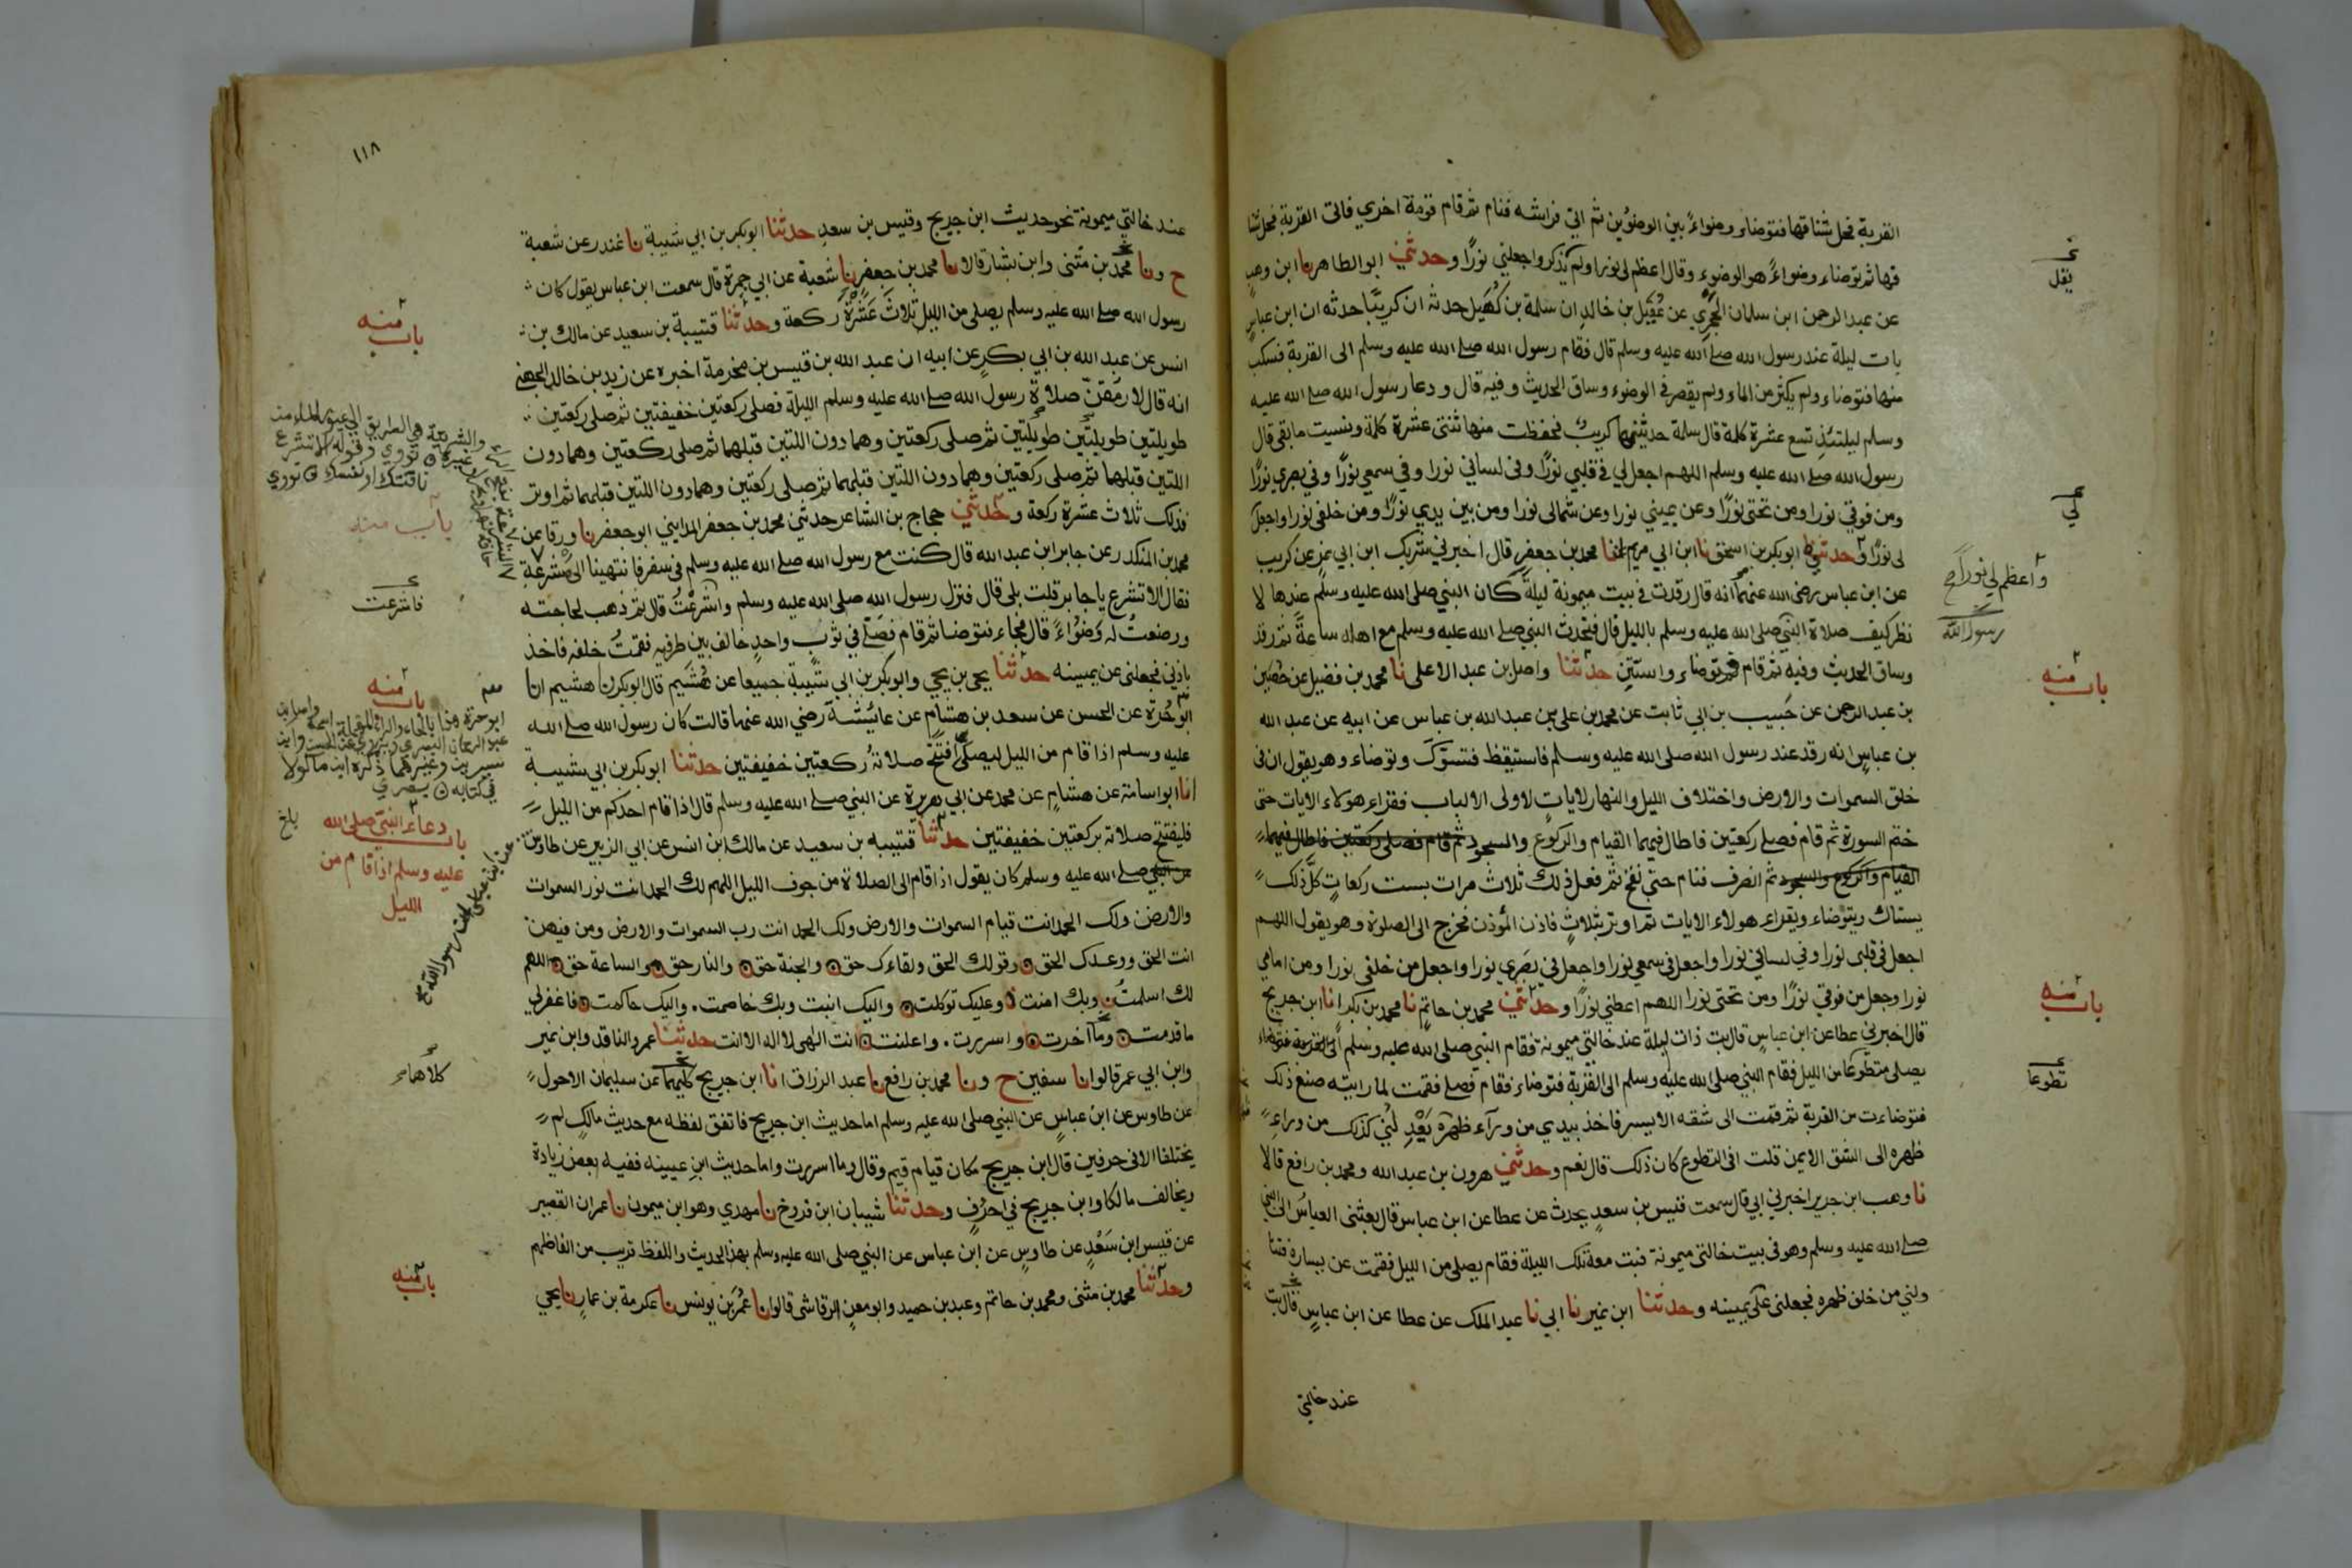 القربة فحل شناقها فتوضاء وضواءً بين الوضوين ثم اتى فراشه فنام ثم قام قومة اخري فاتى القربة فحل شنا
قها ثم توضاء وضواءً هو الوضوء وقال اعظم لي نورا ولم يذكر واجعلني نورًا وحدثني ابو الطاهر نا ابن وهب
عن عبد الرحمن ابن سلمان الحجري عن عُقَيل بن خالد ان سلمة بن كُهَيل حدثه ان كريبًا حدثه ان ابن عباس
بات ليلة عند رسول الله صلى الله عليه وسلم قال فقام رسول الله صلى الله عليه وسلم الى القربة فسكب
منها فتوضاء ولم يكثر من الماء ولم يقصر في الوضوء وساق الحديث وفيه قال ودعا رسول الله صلى الله عليه
وسلم ليلتئذٍ تسع عشرة كلمة قال سلمة حدثنيها كريب فحفظت منها ثنتى عشرة كلمة ونسيت ما بقى قال
رسول الله صلى الله عليه وسلم اللهم اجعل لي في قلبي نورًا وفي لساني نورا وفي سمعي نورًا وفي بصري نورًا
ومن فوقي نورا ومن تحتي نورًا وعن يميني نورا وعن شمالي نورا ومن بين يدي نورًا ومن خلفي نورا واجعل
لى نورًا وحدثني ابو بكر بن اسحق نا ابن ابي مريم انا محمد بن جعفر قال اخبرني شريك ابن ابي نمر عن كريب
عن ابن عباس رضى الله عنهما انه قال رقدت في بيت ميمونة ليلة كان النبي صلى الله عليه وسلم عندها لا
نظر كيف صلاة النبي صلى الله عليه وسلم بالليل قال فتحدث النبي صلى الله عليه وسلم مع اهله ساعةً ثم رقد
وساق الحديث وفيه ثم قام فتوضاء واستن حدثنا واصل بن عبد الاعلى نا محمد بن فضيل عن حُصَين
بن عبد الرحمن عن حَبيب بن ابي ثابت عن محمد بن علي بن عبد الله بن عباس عن ابيه عن عبد الله
بن عباس انه رقد عند رسول الله صلى الله عليه وسلم فاستيقظ فتسوّك وتوضاء وهو يقول ان في
خلق السموات والارض واختلاف الليل والنهار لايات لاولى الالباب فقراء هؤلاء الايات حتى
ختم السورة ثم قام فصلى ركعتين فاطال فيهما القيام والركوع والسجود ثم قام فصلى ركعتين فاطال فيهما
القيام والركوع والسجود ثم انصرف فنام حتى نفخ ثم فعل ذلك ثلاث مرات بست ركعات كلّ ذلك
يستاك ويتوضاء ويقراء هولاء الايات ثم اوتر بثلاثٍ فاذن المؤذن فخرج الى الصلوة وهو يقول اللهم
اجعل في قلبى نورا وفي لساني نورا واجعل في سمعي نورا واجعل في بصري نورا واجعل من خلفى نورا ومن امامي
نورا وجعل من فوقي نورًا ومن تحتى نورا اللهم اعطني نورًا وحدثني محمد بن حاتم نا محمد بن بكر انا ابن جريج
قال اخبرني عطا عن ابن عباس قال بت ذات ليلة عند خالتي ميمونة فقام النبي صلى الله عليه وسلم
يصلى متطوعا من الليل فقام النبي صلى الله عليه وسلم الى القربة فتوضاء فقام فصلى فقمت لما رايته صنع ذلك
فتوضاءت من القربة ثم قمت الى شقه الايسر فاخذ بيدي من ورآء ظهره يَعْدِلُني كذلك من وراء
ظهره الى الشق الايمن قلت افى التطوع كان ذلك قال نعم وحدثني هرون بن عبد الله ومحمد بن رافع قالا
نا وهب ابن جرير اخبرني ابي قال سمعت قيس بن سعد يحدث عن عطا عن ابن عباس قال بعثنى العباس الى النبي
صلى الله عليه وسلم وهو في بيت خالتي ميمونة فبت معه تلك الليلة فقام يصلى من الليل فقمت عن يساره فتنا
ولني من خلف ظهره فجعلني على يمينه وحدثنا ابن نمير نا ابي نا عبد الملك عن عطا عن ابن عباس قال بت
عند خالتي
يقل
لي
واعظم لي نوراً صح
رسول الله
باب منه
باب منه
تطوعا
١١٨
عند خالتي ميمونة نحو حديث ابن جريج وقيس بن سعد حدثنا ابو بكر بن ابي شيبة نا غندر عن شعبة
ح ونا محمد بن مثنى وابن بشار قالا نا محمد بن جعفر نا شعبة عن ابي جمرة قال سمعت ابن عباس يقول كان
رسول الله صلى الله عليه وسلم يصلى من الليل ثلاثَ عَشْرَةَ ركعة وحدثنا قتيبة بن سعيد عن مالك بن
انس عن عبد الله بن ابي بكر عن ابيه ان عبد الله بن قيس بن مخرمة اخبره عن زيد بن خالد الجهني
انه قال لارمقنّ صلاة رسول الله صلى الله عليه وسلم الليلة فصلى ركعتين خفيفتين ثم صلى ركعتين
طويلتين طويلتين طويلتين ثم صلى ركعتين وهما دون اللتين قبلهما ثم صلى ركعتين وهما دون
اللتين قبلهما ثم صلى ركعتين وهما دون اللتين قبلهما ثم صلى ركعتين وهما دون اللتين قبلهما ثم اوتر
فذلك ثلاث عشرة ركعة وحدثني حجاج بن الشاعر حدثني محمد بن جعفر المدايني ابو جعفر نا ورقا عن
محمد بن المنكدر عن جابر ابن عبد الله قال كنت مع رسول الله صلى الله عليه وسلم في سفر فانتهينا الى مشرعة
فقال الا تشرع يا جابر قلت بلى قال فنزل رسول الله صلى الله عليه وسلم واشرعْتُ قال ثم ذهب لحاجته
ووضعتُ له وَضُوْاءً قال فجاء فتوضا ثم قام فصلى في ثوب واحدٍ خالف بين طرفيه فقمتُ خلفه فاخذ
باذني فجعلنى عن يمينه حدثنا يحيى بن يحيى وابو بكر بن ابي شيبة جميعا عن هُشَيم قال ابو بكر نا هشيم انا
ابو حُرّة عن الحسن عن سعد بن هشام عن عائشة رضي الله عنها قالت كان رسول الله صلى الله
عليه وسلم اذا قام من الليل ليصلى افتتح صلاتهُ ركعتين خفيفتين حدثنا ابو بكر بن ابي شيبة
انا ابو اسامة عن هشام عن محمد عن ابي هريرة عن النبي صلى الله عليه وسلم قال اذا قام احدكم من الليل
فليفتتح صلاته بركعتين خفيفتين حدثنا قتيبه بن سعيد عن مالك ابن انس عن ابي الزبير عن طاوس
عن النبي صلى الله عليه وسلم كان يقول اذا قام الى الصلاة من جوف الليل اللهم لك الحمد انت نور السموات
والارض ولك الحمد انت قيام السموات والارض ولك الحمد انت رب السموات والارض ومن فيهن
انت الحق ووعدك الحق وقولك الحق ولقاءك حق والجنة حق والنار حق والساعة حق اللهم
لك اسلمتُ وبك امنت وعليك توكلت واليك انبت وبك خاصمت واليك حاكمت فاغفرلي
ما قدمت وما آخرت واسررت واعلنت انت الٰهى لا اله الا انت حدثنا عمرو الناقد وابن نمير
وابن ابي عمر قالوا نا سفين ح ونا محمد بن رافع نا عبد الرزاق انا ابن جريج كليهما عن سليمان الاحول
عن طاوس عن ابن عباس عن النبي صلى الله عليه وسلم اما حديث ابن جريج فاتفق لفظه مع حديث مالكٍ لم
يختلفا الا في حرفين قال ابن جريج مكان قيام قيم وقال وما اسررت واما حديث ابن عيينه ففيه بعض زيادة
ويخالف مالكا وابن جريج في احرُفٍ وحدثنا شيبان ابن فروخ نا مهدي وهو ابن ميمون نا عمران القصير
عن قيس ابن سَعْدٍ عن طاوس عن ابن عباس عن النبي صلى الله عليه وسلم بهذا الحديث واللفظ قريب من الفاظهم
وحدثنا محمد بن مثنى ومحمد بن حاتم وعبد بن حميد وابو معن الرقاشى قالوا نا عُمر بن يونس نا عكرمة بن عمار نا يحيي
باب منه
باب منه
فاشرعت
باب منه
ابو حرة هذا بالحاء والراء المهملة اسمه واصل بن
عبد الرحمان البصري يروي عن الحسن وابن
سيرين وغيرهما ذكره ابن ماكولا
في كتابه
بلغ
باب دعاء النبي صلى الله
عليه وسلم اذا قام من
الليل
عن ابن عباس ان رسول الله صح
كلاهما
باب منه